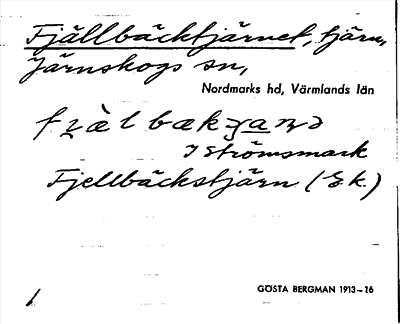 Fjällbäcktjärnet, tjärn,
Järnskogs sn,
Nordmarks hd, Värmlands län
I Strömsmark
Fjellbäckstjärn (G.k.)
GÖSTA BERGMAN 1913–16